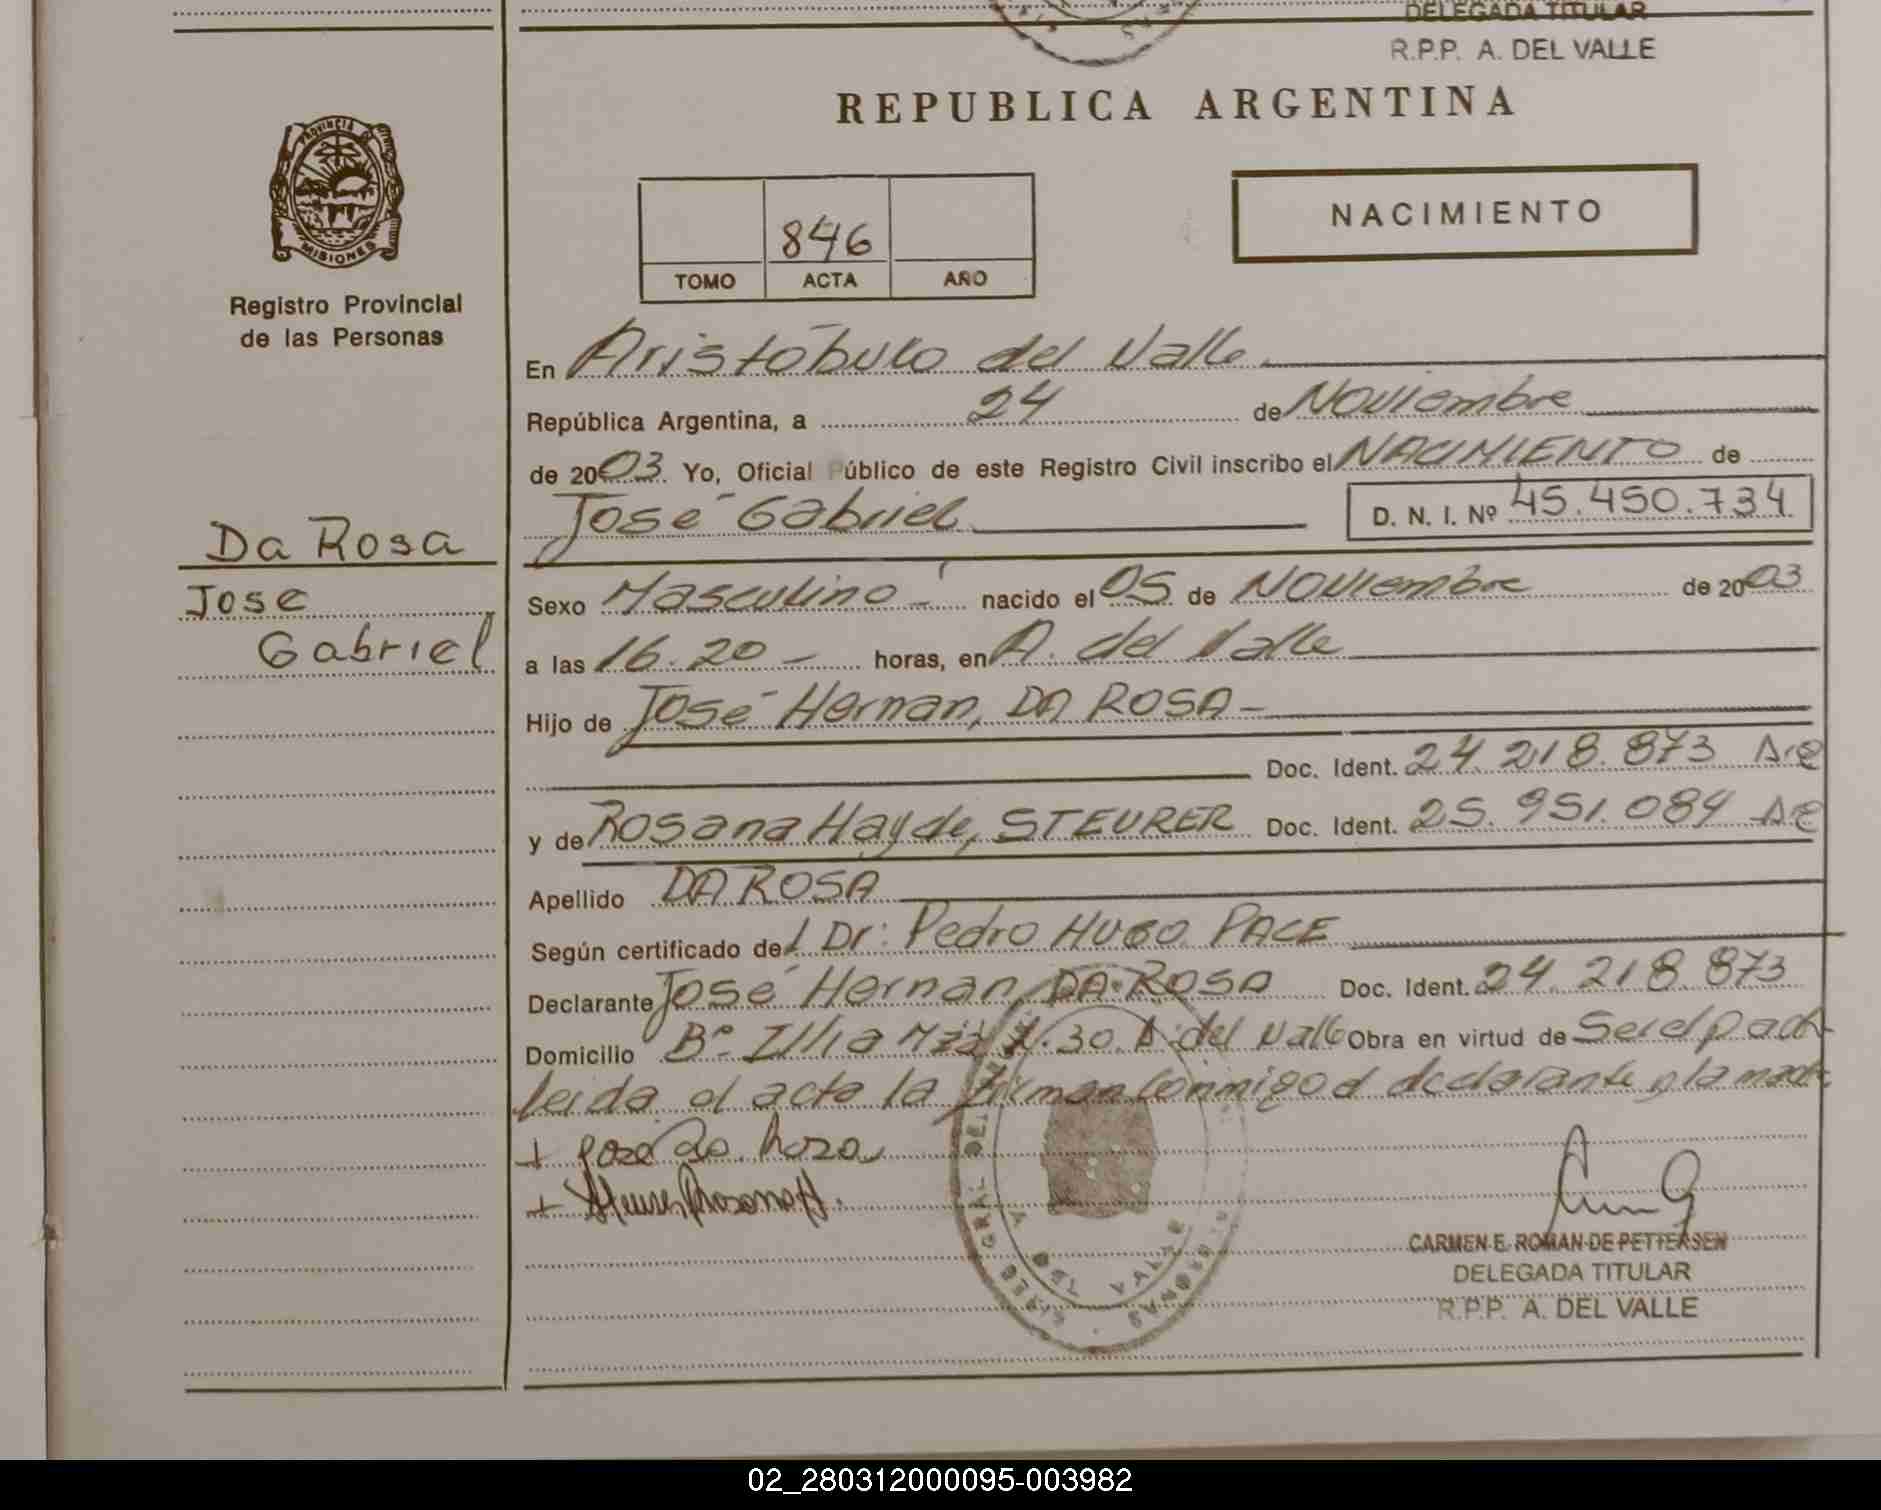 DELEGADA TITULAR
R.P.P. A. DEL VALLE
REPUBLICA ARGENTINA
PROVINCIA DE
MISIONES
Registro Provincial
de las Personas
846
TOMO ACTA AÑO
NACIMIENTO
En Aristóbulo del Valle
República Argentina, a 24 de Noviembre
de 2003. Yo, Oficial Público de este Registro Civil inscribo el NACIMIENTO de
José Gabriel D. N. I. Nº 45.450.734
Da Rosa
Jose
Gabriel
Sexo Masculino nacido el 05 de Noviembre de 2003
a las 16.20 horas, en A. del Valle
Hijo de José Hernan, DA ROSA
Doc. Ident. 24.218.873
y de Rosana Hayde, STEURER Doc. Ident. 25.951.084
Apellido DA ROSA
Según certificado del Dr: Pedro HUGO PACE
Declarante José Hernan, DA ROSA Doc. Ident. 24.218.873
Domicilio Bº Illia Mz 30. A. del Valle Obra en virtud de Ser el padre
leida el acta la firman conmigo el declarante y la madre
+ José da Rosa
+ Steurer Rosana H.
CARMEN E. ROMAN DE PETTERSEN
DELEGADA TITULAR
R.P.P. A. DEL VALLE
02_280312000095-003982